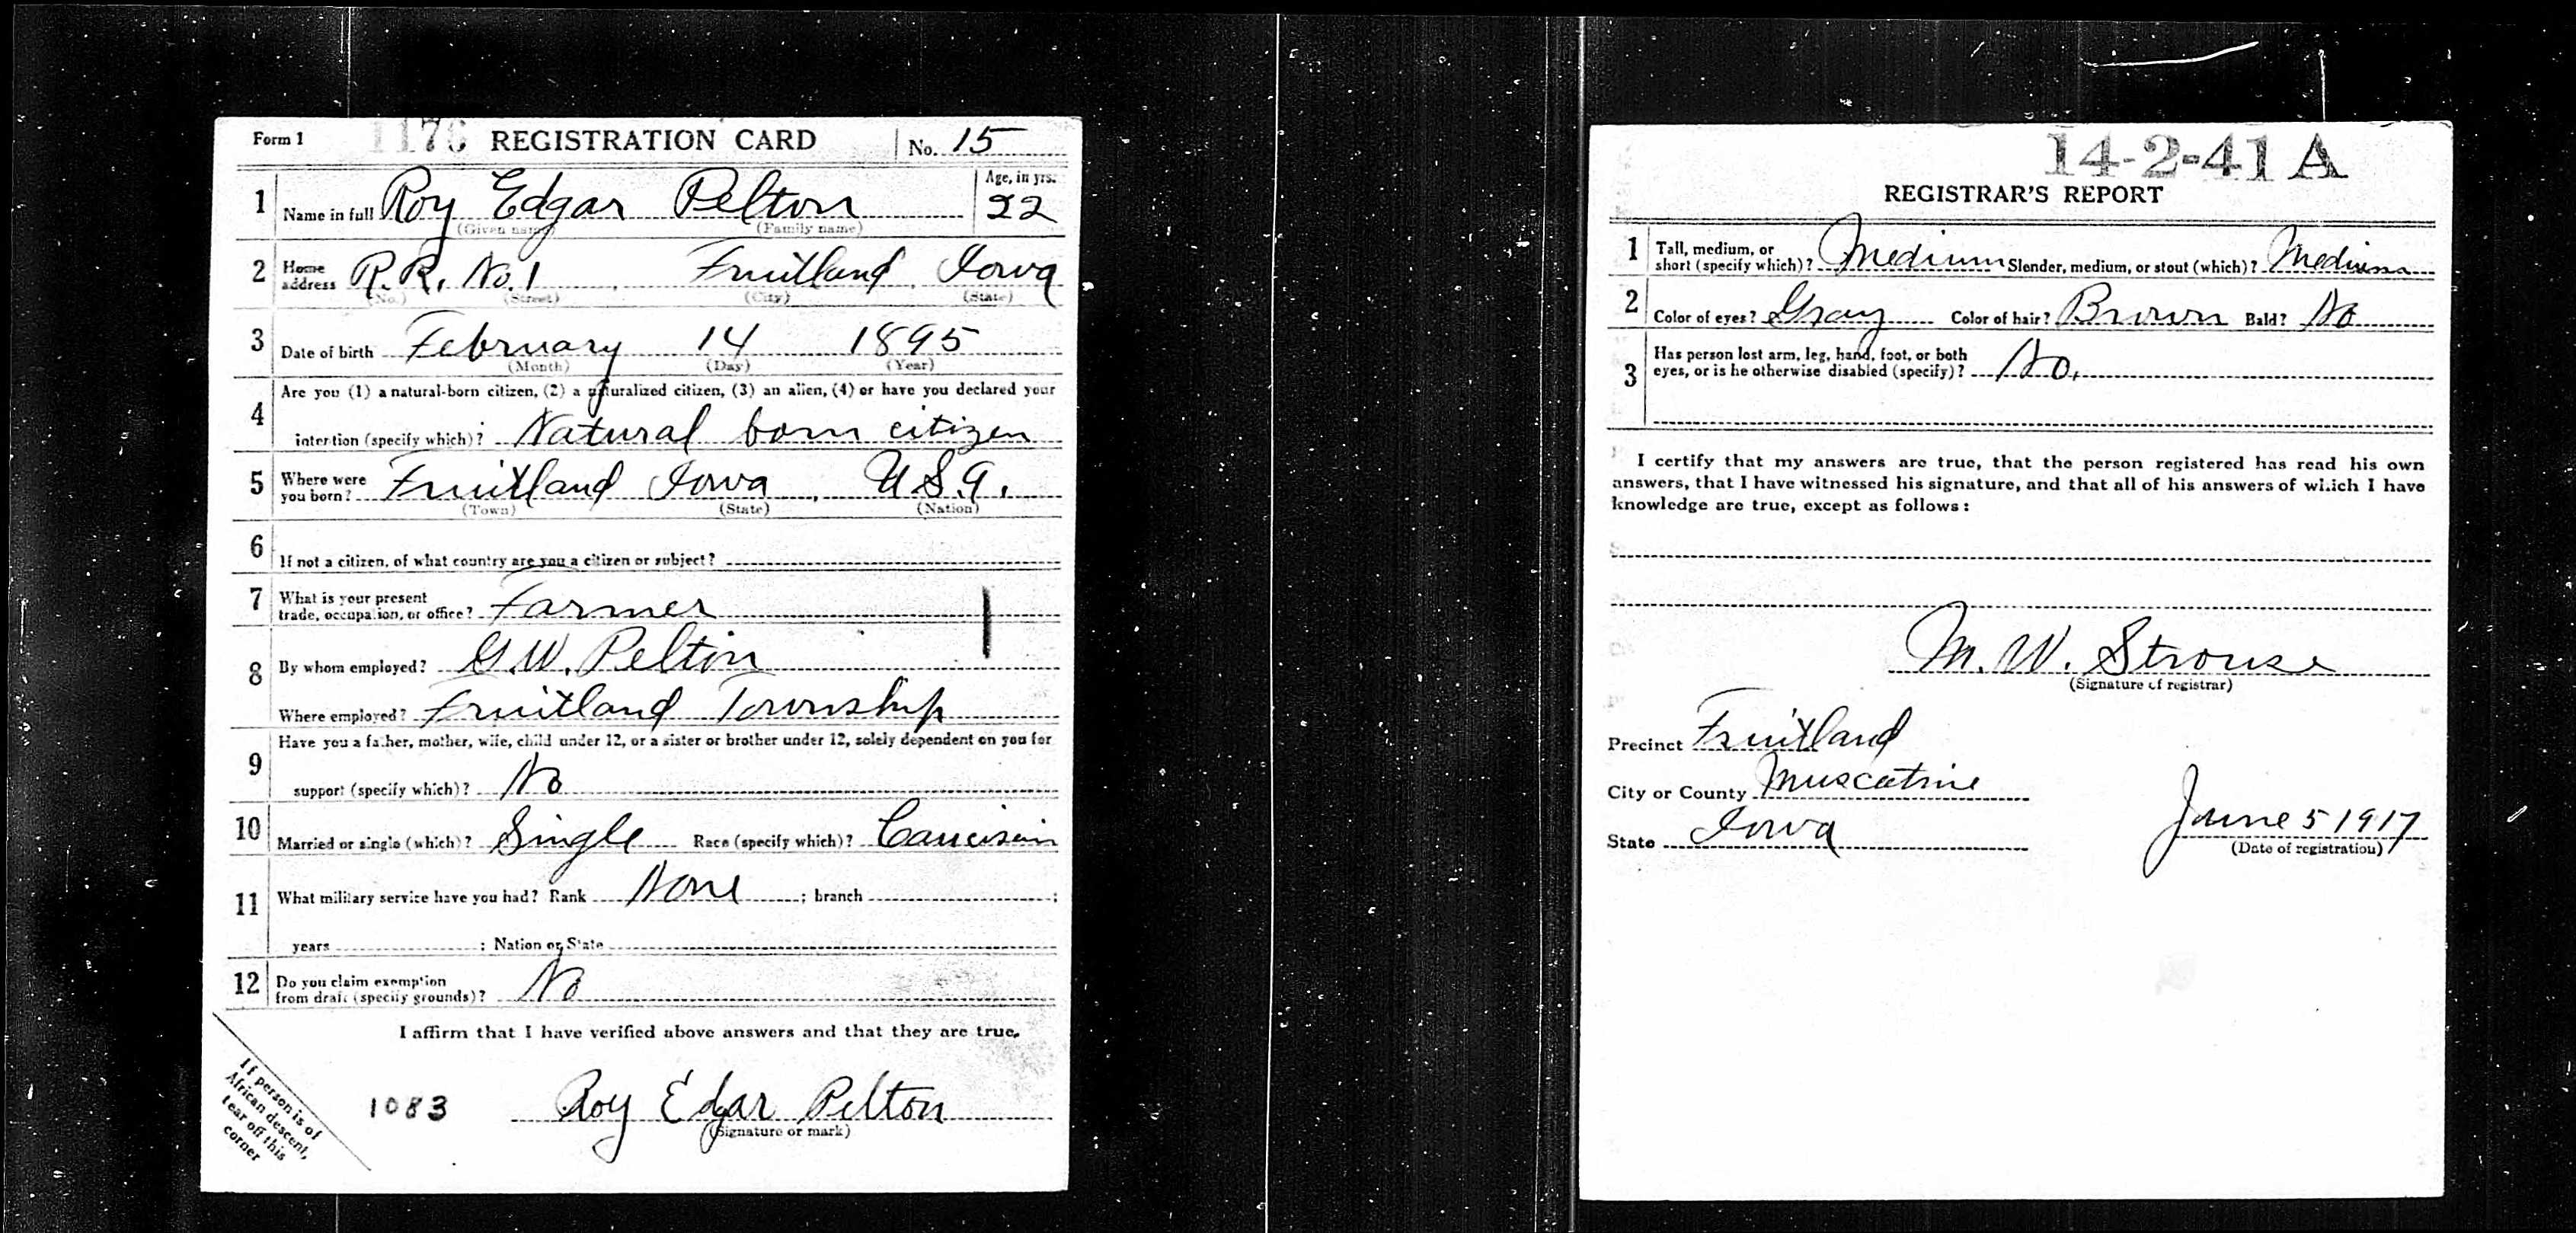 Form 1 1176 REGISTRATION CARD No. 15
1 Name in full Roy Edgar Pelton Age, in yrs. 22
(Given name) (Family name)
2 Home address R.R. No. 1 Fruitland, Iowa
(No.) (Street) (City) (State)
3 Date of birth February 14 1895
(Month) (Day) (Year)
4 Are you (1) a natural-born citizen, (2) a naturalized citizen, (3) an alien, (4) or have you declared your
intention (specify which)? Natural born citizen
5 Where were you born? Fruitland Iowa, U.S.A.
(Town) (State) (Nation)
6 If not a citizen, of what country are you a citizen or subject?
7 What is your present
trade, occupation, or office? Farmer
8 By whom employed? G.W. Pelton
Where employed? Fruitland Township
9 Have you a father, mother, wife, child under 12, or a sister or brother under 12, solely dependent on you for
support (specify which)? No
10 Married or single (which)? Single Race (specify which)?
11 What military service have you had? Rank None ; branch ;
years ; Nation or State
12 Do you claim exemption
from draft (specify grounds)? No
I affirm that I have verified above answers and that they are true.
1083 Roy Edgar Pelton
(Signature or mark)
If person is of
African descent,
tear off this
corner
14-2-41 A
REGISTRAR'S REPORT
1 Tall, medium, or
short (specify which)? Medium Slender, medium, or stout (which)? Medium
2 Color of eyes? Gray Color of hair? Brown Bald? No
3 Has person lost arm, leg, hand, foot, or both
eyes, or is he otherwise disabled (specify)? No.
I certify that my answers are true, that the person registered has read his own
answers, that I have witnessed his signature, and that all of his answers of which I have
knowledge are true, except as follows:
M. W. Strouse
(Signature of registrar)
Precinct Fruitland
City or County Muscatine
State Iowa June 5 1917
(Date of registration)